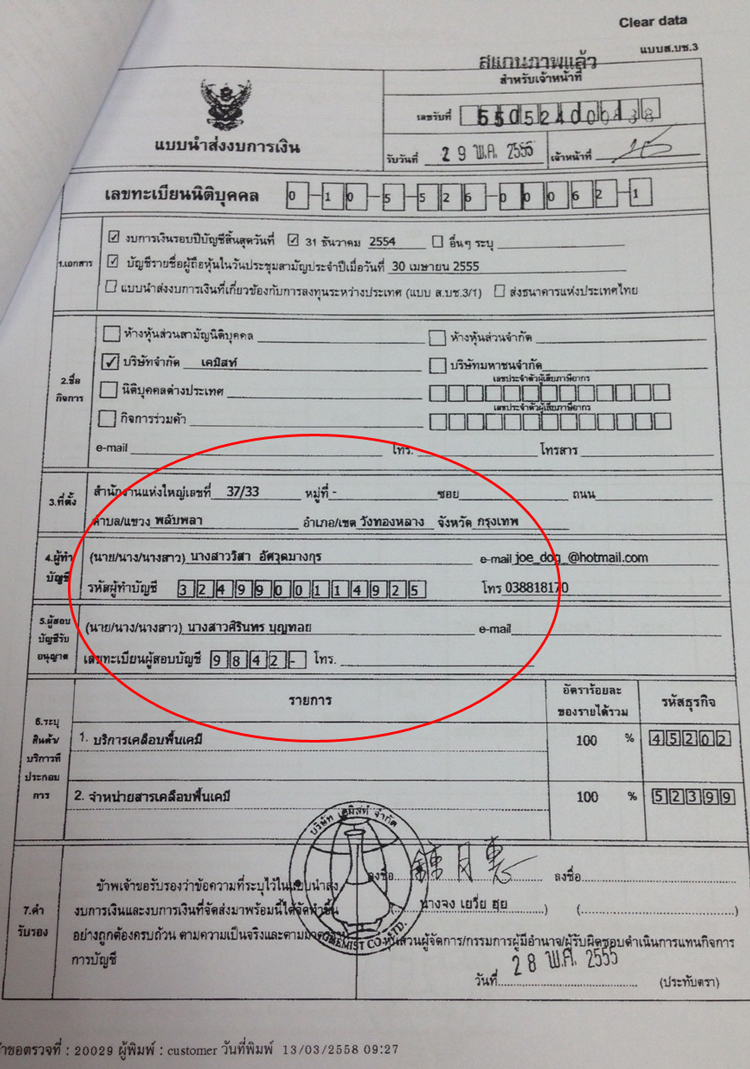 Clear data
แบบส.บช.3
สแกนภาพแล้ว
สำหรับเจ้าหน้าที่
เลขรับที่
แบบนำส่งงบการเงิน
รับวันที่ 29 พ.ค. 2555 เจ้าหน้าที่
เลขทะเบียนนิติบุคคล 0-10-5-526-00062-1
1.เอกสาร
☑ งบการเงินรอบปีบัญชีสิ้นสุดวันที่ ☑ 31 ธันวาคม 2554 ☐ อื่นๆ ระบุ
☑ บัญชีรายชื่อผู้ถือหุ้นในวันประชุมสามัญประจำปีเมื่อวันที่ 30 เมษายน 2555
☐ แบบนำส่งงบการเงินที่เกี่ยวข้องกับการลงทุนระหว่างประเทศ (แบบ ส.บช.3/1) ☐ ส่งธนาคารแห่งประเทศไทย
2.ชื่อกิจการ
☐ ห้างหุ้นส่วนสามัญนิติบุคคล ☐ ห้างหุ้นส่วนจำกัด
☑ บริษัทจำกัด เคมิสท์ ☐ บริษัทมหาชนจำกัด
เลขประจำตัวผู้เสียภาษีอากร
☐ นิติบุคคลต่างประเทศ
เลขประจำตัวผู้เสียภาษีอากร
☐ กิจการร่วมค้า
e-mail โทร. โทรสาร
3.ที่ตั้ง
สำนักงานแห่งใหญ่เลขที่ 37/33 หมู่ที่ - ซอย ถนน
ตำบล/แขวง พลับพลา อำเภอ/เขต วังทองหลาง จังหวัด กรุงเทพ
4.ผู้ทำบัญชี
(นาย/นาง/นางสาว) นางสาววิสา อัศวุดมางกุร e-mail joe_dog_@hotmail.com
รหัสผู้ทำบัญชี 3249900114925 โทร 038818170
5.ผู้สอบบัญชีรับอนุญาต
(นาย/นาง/นางสาว) นางสาวศิรินทร บุญทอย e-mail
เลขทะเบียนผู้สอบบัญชี 9842- โทร.
รายการ อัตราร้อยละของรายได้รวม รหัสธุรกิจ
6.ระบุสินค้า/บริการที่ประกอบการ
1. บริการเคลือบพื้นเคมี 100 % 45202
2. จำหน่ายสารเคลือบพื้นเคมี 100 % 52399
บริษัท เคมิสท์ จำกัด
CHEMIST CO.,LTD.
7.คำรับรอง
ข้าพเจ้าขอรับรองว่าข้อความที่ระบุไว้ในแบบนำส่ง ลงชื่อ ลงชื่อ
งบการเงินและงบการเงินที่จัดส่งมาพร้อมนี้ได้จัดทำขึ้น (นางจง เยวี่ย ฮุย) ( )
อย่างถูกต้องครบถ้วน ตามความเป็นจริงและตาม หุ้นส่วนผู้จัดการ/กรรมการผู้มีอำนาจ/ผู้รับผิดชอบดำเนินการแทนกิจการ
การบัญชี
วันที่ 28 พ.ค. 2555 (ประทับตรา)
คำขอตรวจที่ : 20029 ผู้พิมพ์ : customer วันที่พิมพ์ 13/03/2558 09:27